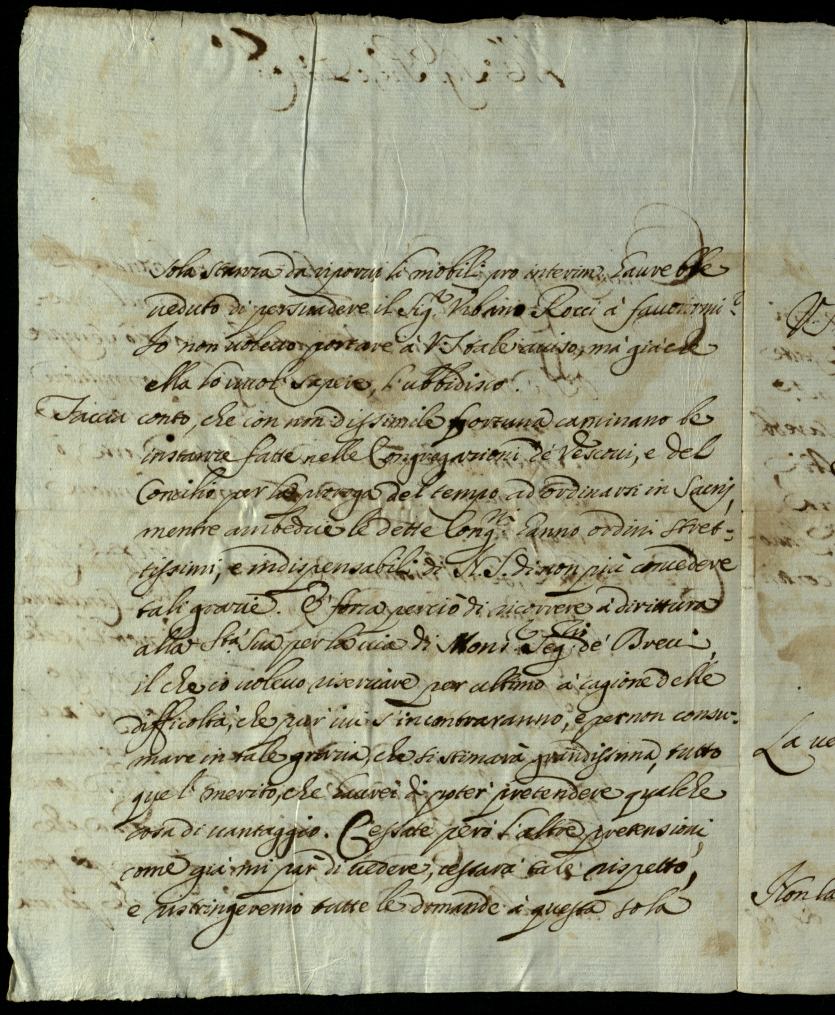 sola stanza da riporvi li mobili pro interim, haurebbe
veduto di persuadere il Sig.r Urbano Rocci à favorirmi.
Io non volevo portare à V.S. tale aviso, mà già che
ella lo vuol sapere, l'ubbidisco.
Faccia conto, che con non dissimile fortuna caminano le
instanze fatte nelle Congregazioni de' Vescovi, e del
Concilio per la proroga del tempo ad ordinarsi in Sacris,
mentre ambedue le dette Cong.ni hanno ordini stret-
tissimi, e indispensabili di N.S. di non più concedere
tali grazie. È forza perciò di ricorrere à dirittura
alla S.tà Sua per la via di Mons.r Seg.rio de' Brevi,
il che io volevo riservare per ultimo à cagione delle
difficoltà, che pur ivi s'incontraranno, e per non consu-
mare in tale grazia, che si stimarà grandissima, tutto
quel merito, che haurei di poter pretendere qualche
cosa di vantaggio. Cessate però l'altre pretensioni,
come già mi par di vedere, cessarà tale rispetto,
e ristringeremo tutte le domande à questa sola
La ve
Non la